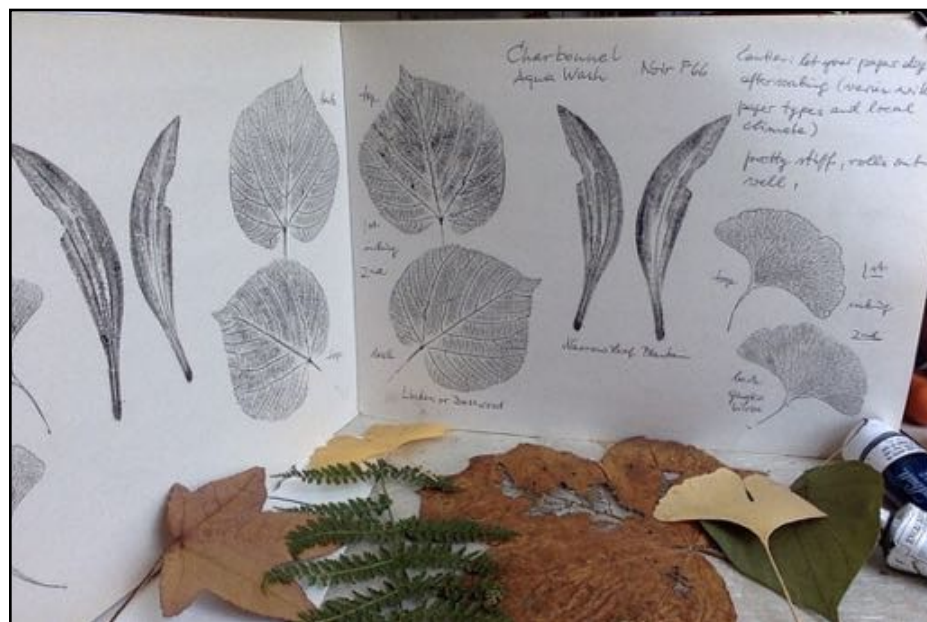 Charbonnel
Aqua Wash
Noir F66
Caution: let your paper dry
after soaking (varies with
paper types and local
climate)
pretty stiff, rolls out
well,
back
top
1st
inking
2nd
back
Linden or Basswood
Narrow leaf Plantain
top
1st
inking
2nd
back
ginkgo
biloba
top